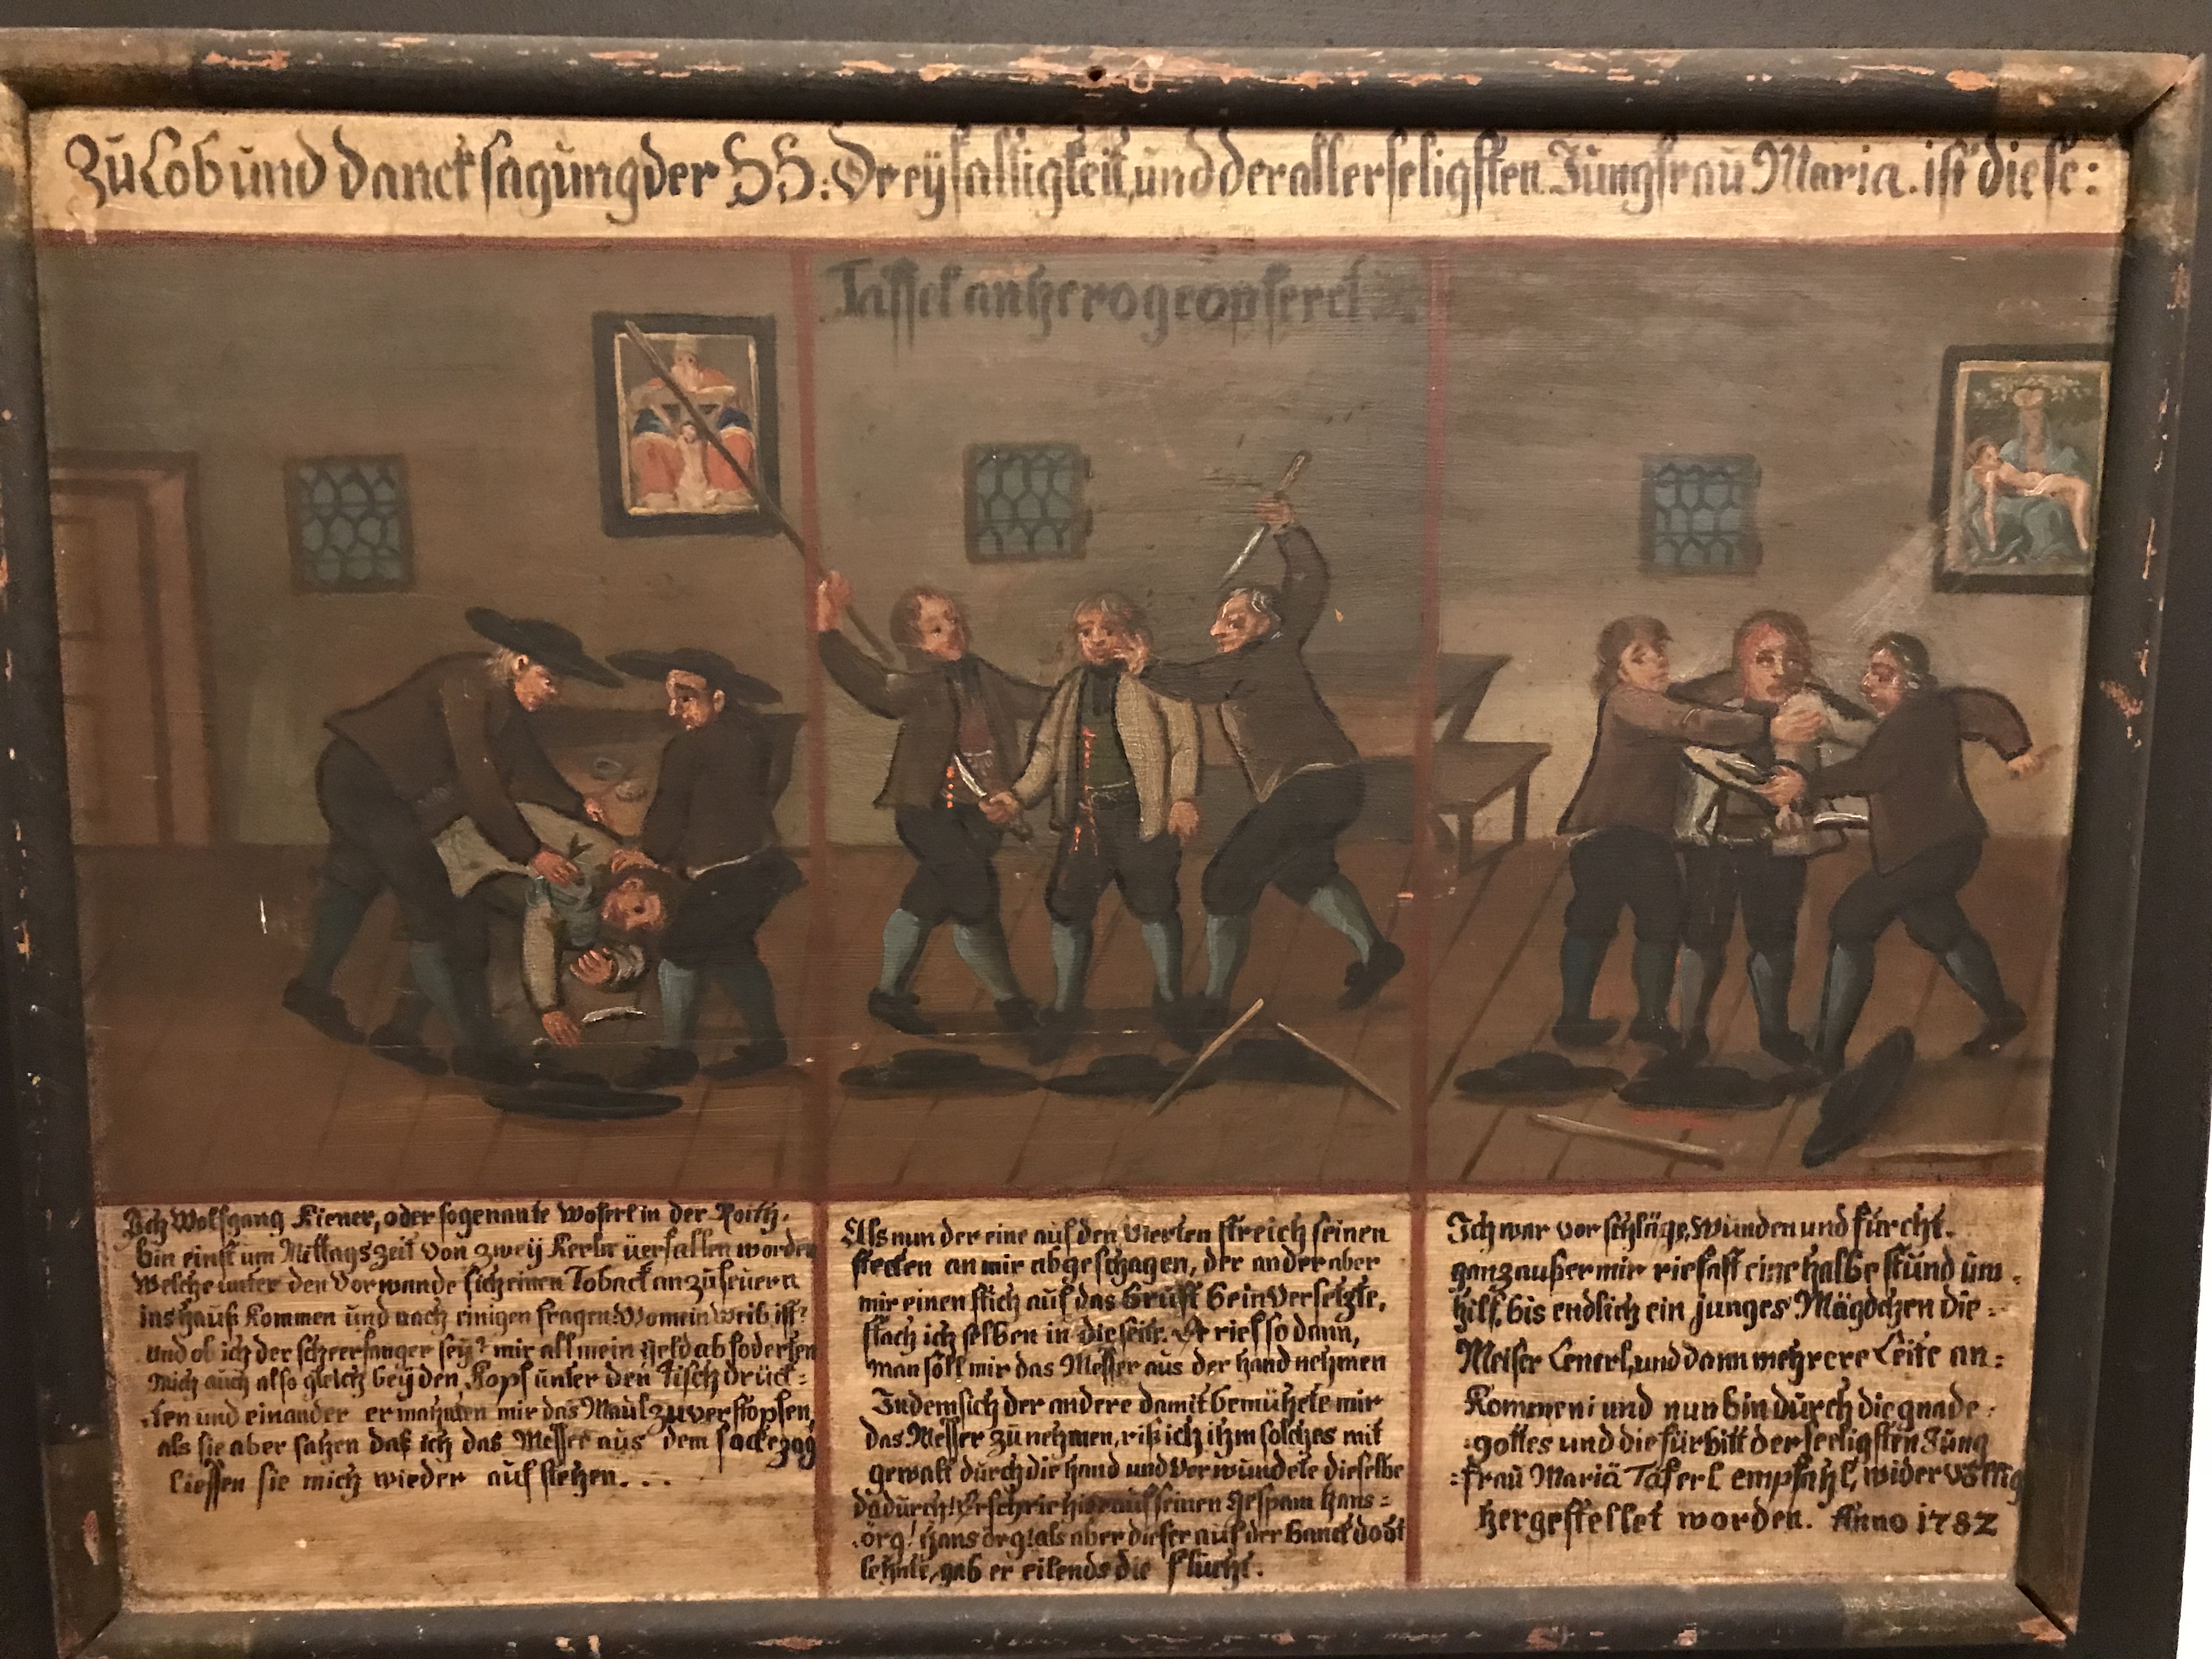 Zu Lob und Dancksagung der HH: Dreyfaltigkeit, und der allerseligsten Jungfrau Maria. ist diese:
Taffel anhero geopferet
Ich Wolfgang Kiener, oder sogenante Woferl in der Roith,
bin einst um Mittagszeit von zweÿ Kerln überfallen worden
Welche unter den Vorwande sich einen Toback anzufeuern
ins hauß kommen und nach einigen fragen: Wo mein Weib ist?
und ob ich der scheerfanger seÿ? mir all mein geld abfoderten
mich auch also gleich beÿ den Kopf unter den Tisch drück=
ten und einander ermahnten mir das Maul zu verstopfen,
als sie aber sahen daß ich das Messer aus dem sack zog
liessen sie mich wieder auf stehen...
Als nun der eine auf den vierten streich seinen
stecken an mir abgeschagen, der ander aber
mir einen stich auf das brust bein versetzte,
stach ich selben in die seite. Er rief so dann,
man soll mir das Messer aus der hand nehmen
Indem sich der andere damit bemühete mir
das Messer zu nehmen, riß ich ihm solches mit
gewalt durch die hand und verwundete dieselbe
dadurch! Er schrie hierauf seinen gespann hans=
örg! hans örg! als aber dieser auf der banck dodt
lehnte, gab er eilends die flucht.
Ich war vor schläge, Wunden und furcht.
ganz außer mir rief fast eine halbe stund um
hilf, bis endlich ein junges Mägdchen die=
Meiser Lenerl, und dann mehrere Leite an=
kommen: und nun bin durch die gnade
gottes und die fürbitt der seeligsten Jung
=frau Mariä Taferl empfahl, wider völlig
hergestellet worden. Anno 1782